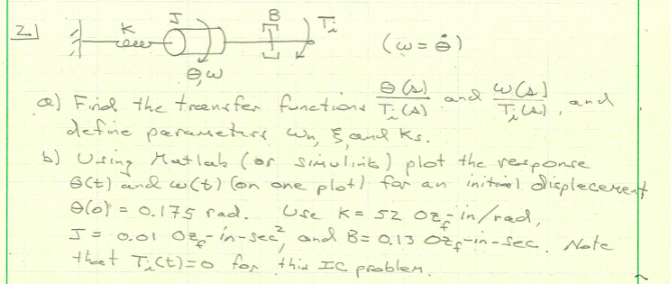 2.]
K J B Ti
θ,ω
(ω = θ̇)
a) Find the transfer functions θ(s)/Ti(s) and ω(s)/Ti(s), and
define parameters ωn, ξ, and Ks.
b) Using Matlab (or simulink) plot the response
θ(t) and ω(t) (on one plot) for an initial displacement
θ(0) = 0.175 rad. Use K = 52 ozf-in/rad,
J = 0.01 ozf-in-sec², and B = 0.13 ozf-in-sec. Note
that Ti(t)=0 for this IC problem.